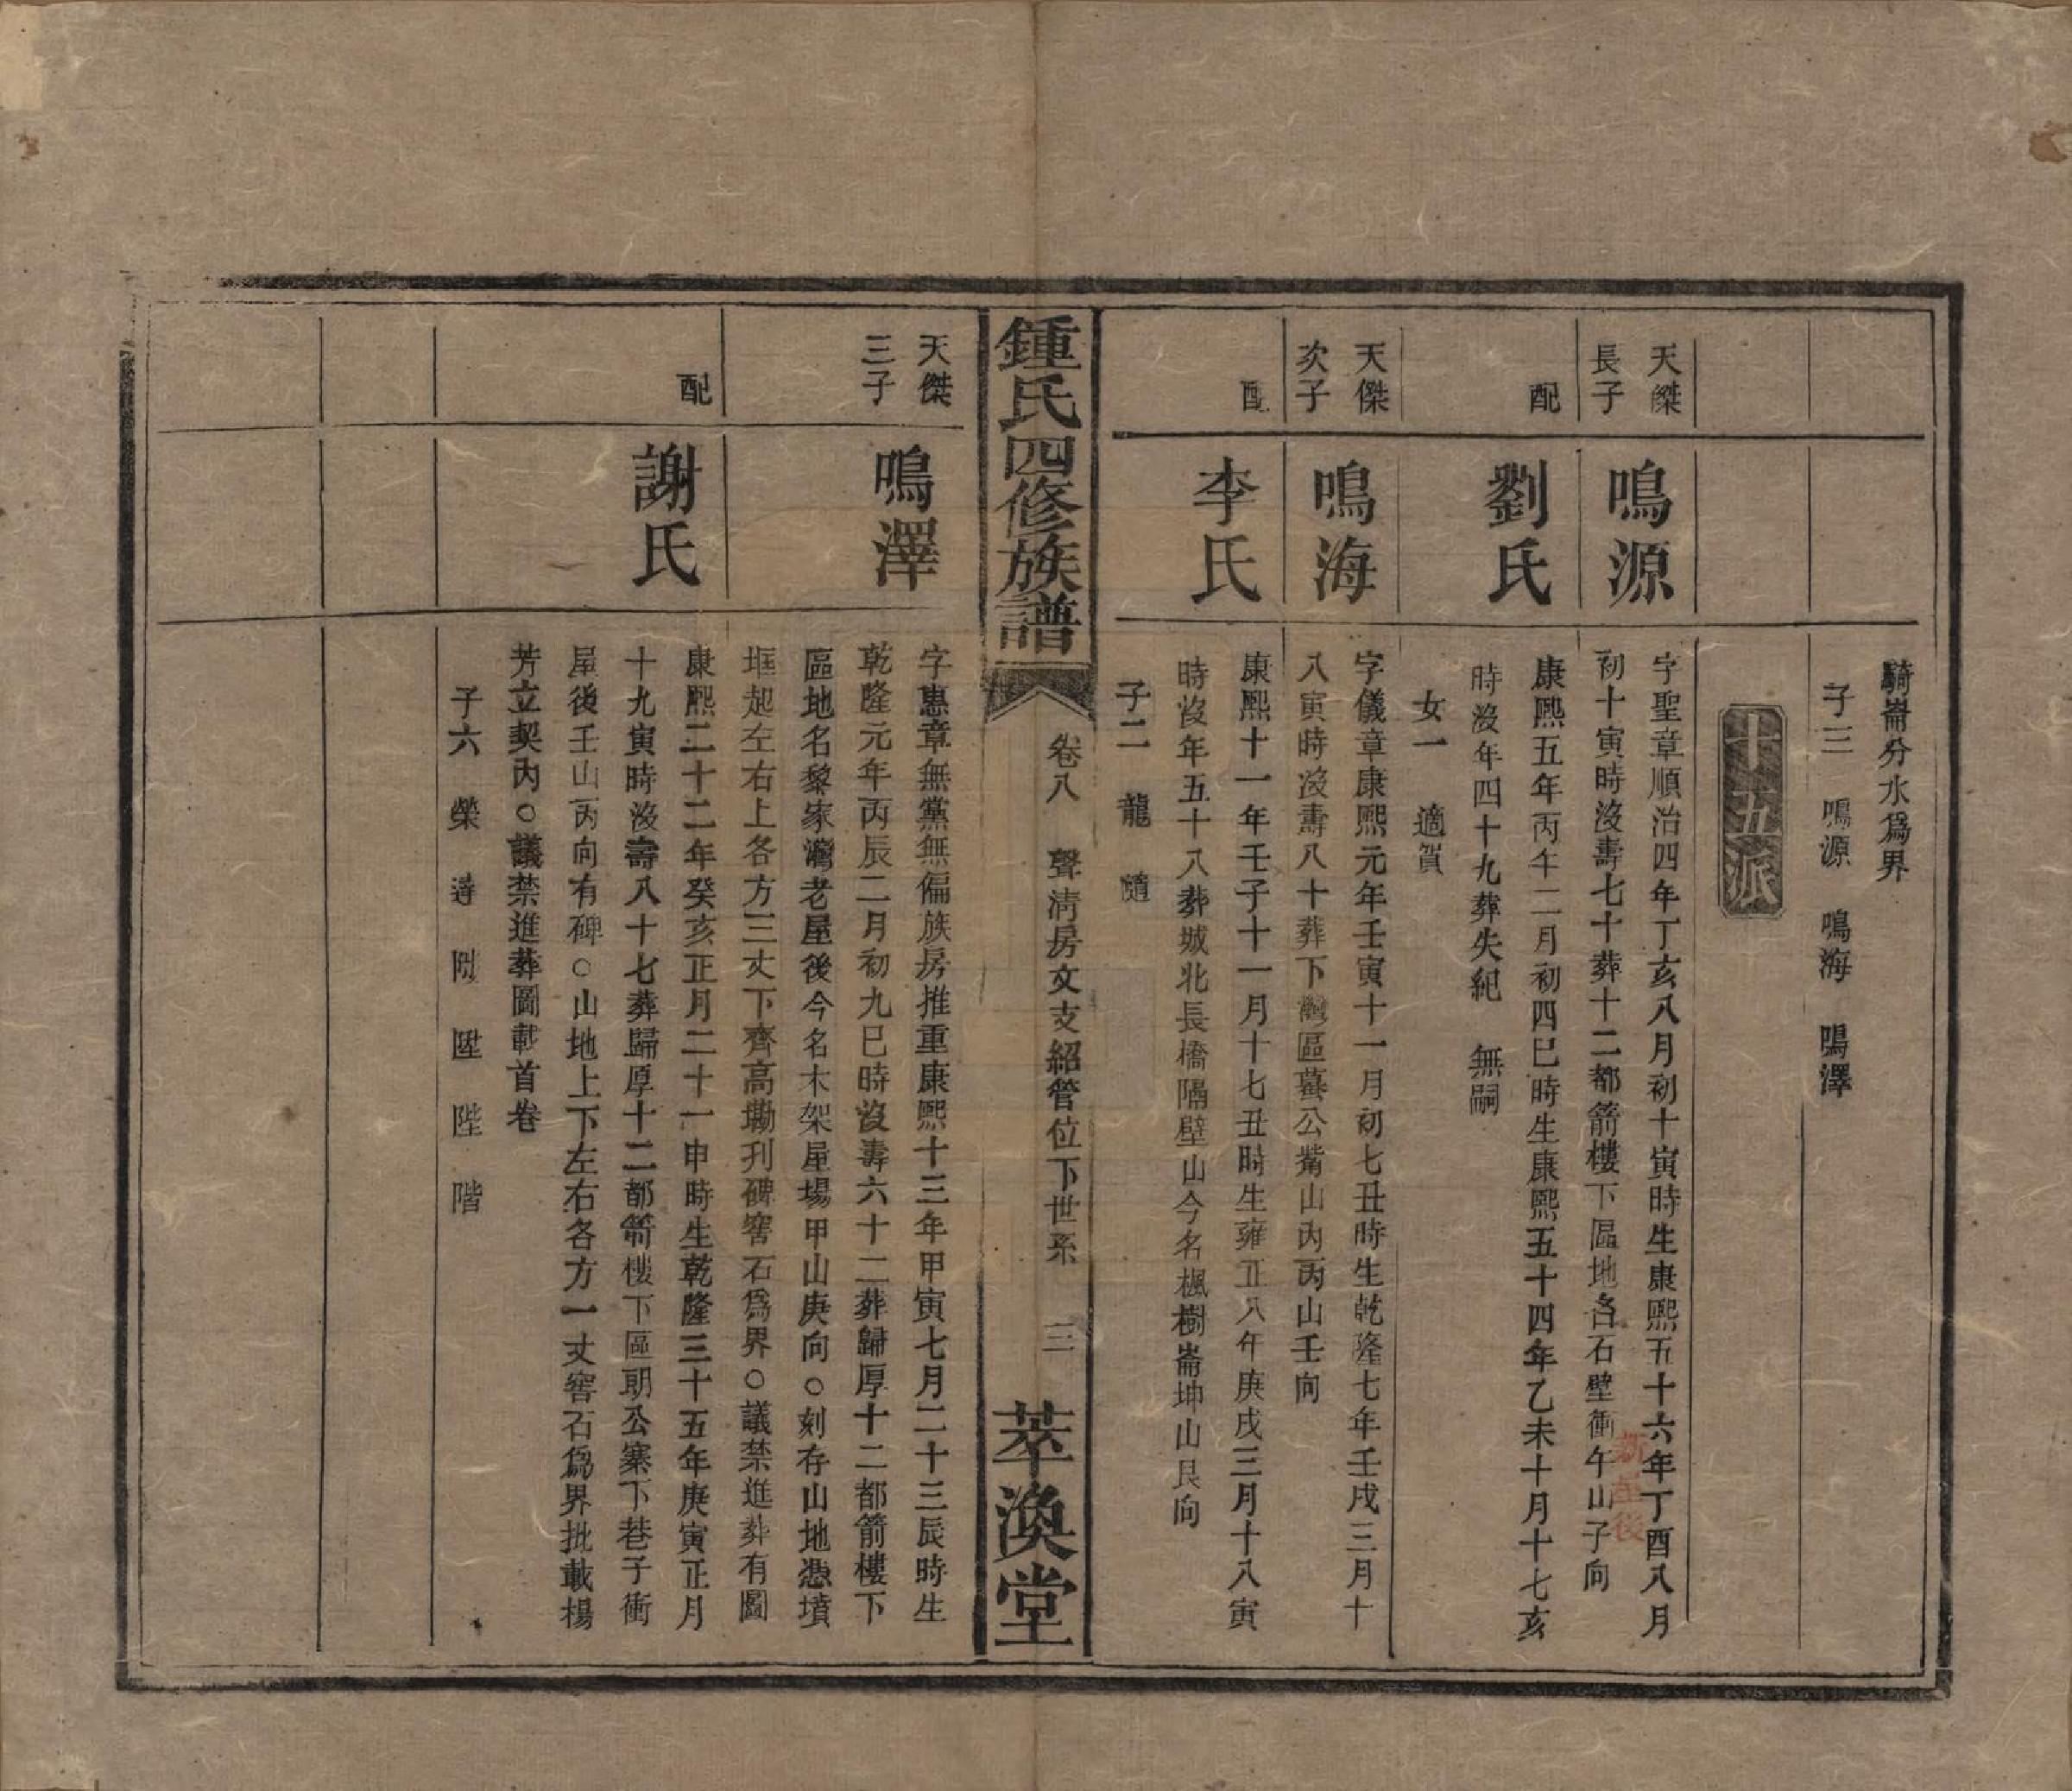 騎崙分水爲界
子三　鳴源　鳴海　鳴澤
十五派
天傑
長子
鳴源
字聖章順治四年丁亥八月初十寅時生康熙五十六年丁酉八月
初十寅時沒壽七十葬十二都箭樓下區地名石壁衝午山子向
配
劉氏
康熙五年丙午二月初四巳時生康熙五十四年乙未十月十七亥
時沒年四十九葬失紀　無嗣
女一　適賀
天傑
次子
鳴海
字儀章康熙元年壬寅十一月初七丑時生乾隆七年壬戌三月十
八寅時沒壽八十葬下灣區蟇公嘴山內丙山壬向
配
李氏
康熙十一年壬子十一月十七丑時生雍正八年庚戌三月十八寅
時沒年五十八葬城北長橋隔壁山今名楓樹崙坤山艮向
子二　龍　隨
鍾氏四修族譜
卷八　聲淸房文支紹管位下世系　三
萃渙堂
天傑
三子
鳴澤
字惠章無黨無偏族房推重康熙十三年甲寅七月二十三辰時生
乾隆元年丙辰二月初九巳時沒壽六十二葬歸厚十二都箭樓下
區地名黎家灣老屋後今名木架屋場甲山庚向○刻存山地憑墳
堆起左右上各方三丈下齊高墈刋碑窖石爲界○議禁進葬有圖
配
謝氏
康熙二十二年癸亥正月二十一申時生乾隆三十五年庚寅正月
十九寅時沒壽八十七葬歸厚十二都箭樓下區朙公寨下巷子衝
屋後壬山丙向有碑○山地上下左右各方一丈窖石爲界批載楊
芳立契內○議禁進葬圖載首卷
子六　榮　陞　陛　階
新
後